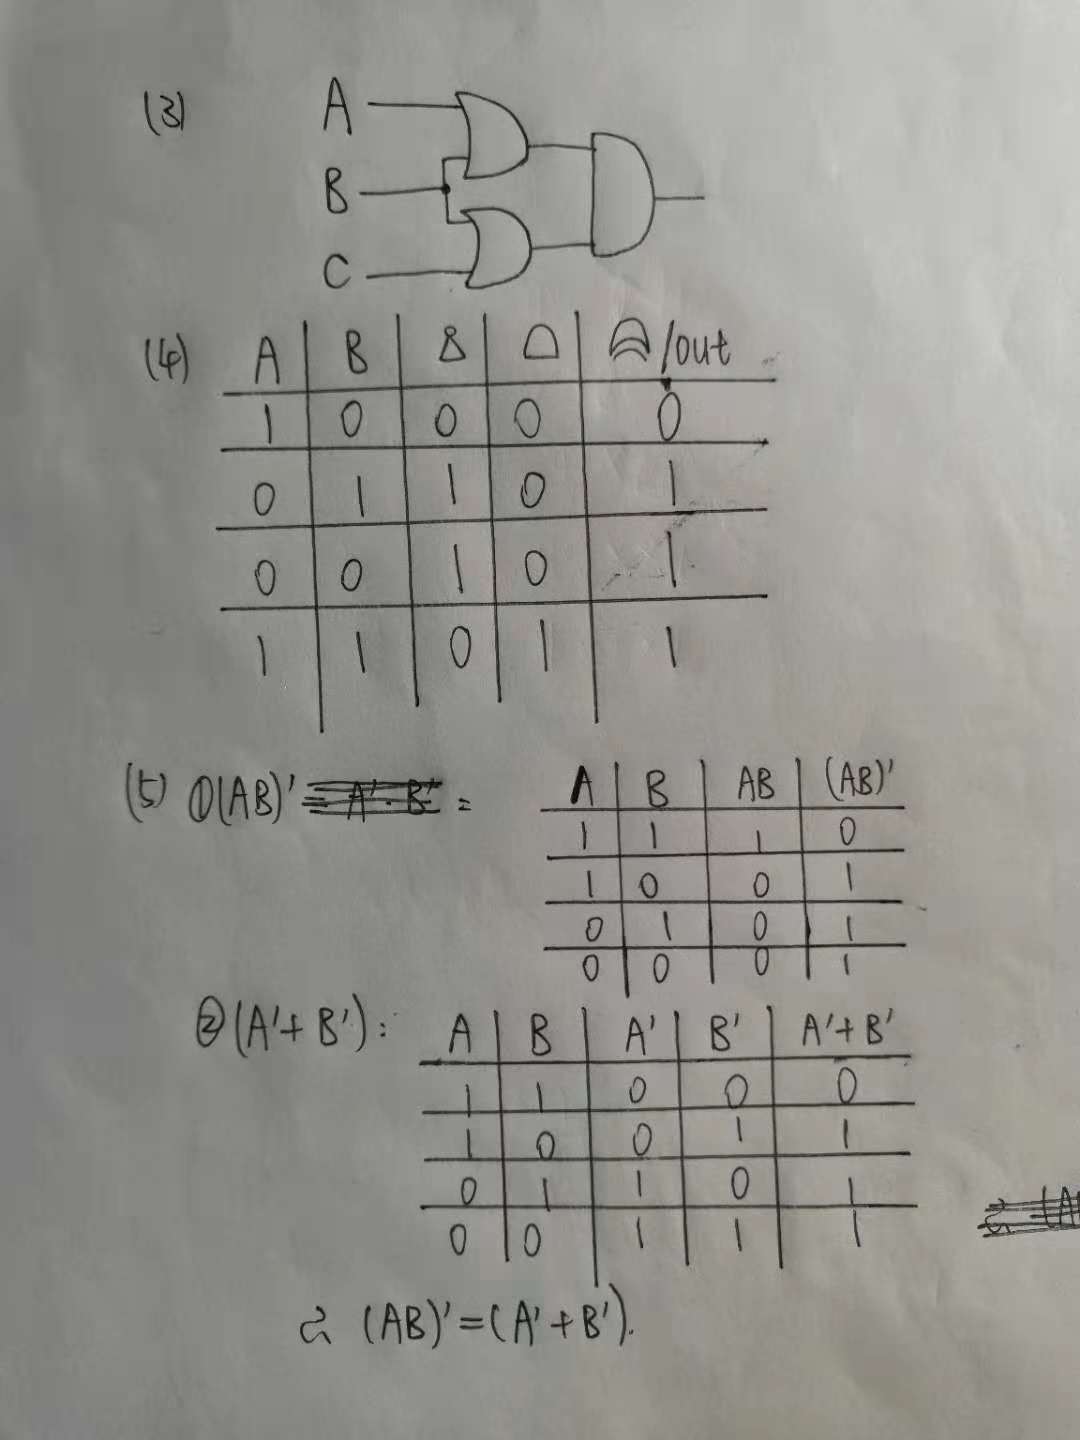 (3) A
B
C
(4) A B /out
1 0 0 0 0
0 1 1 0 1
0 0 1 0 1
1 1 0 1 1
(5) ①(AB)' = A'·B' =
A B AB (AB)'
1 1 1 0
1 0 0 1
0 1 0 1
0 0 0 1
②(A'+B'):
A B A' B' A'+B'
1 1 0 0 0
1 0 0 1 1
0 1 1 0 1
0 0 1 1 1
(AB)'=(A'+B').